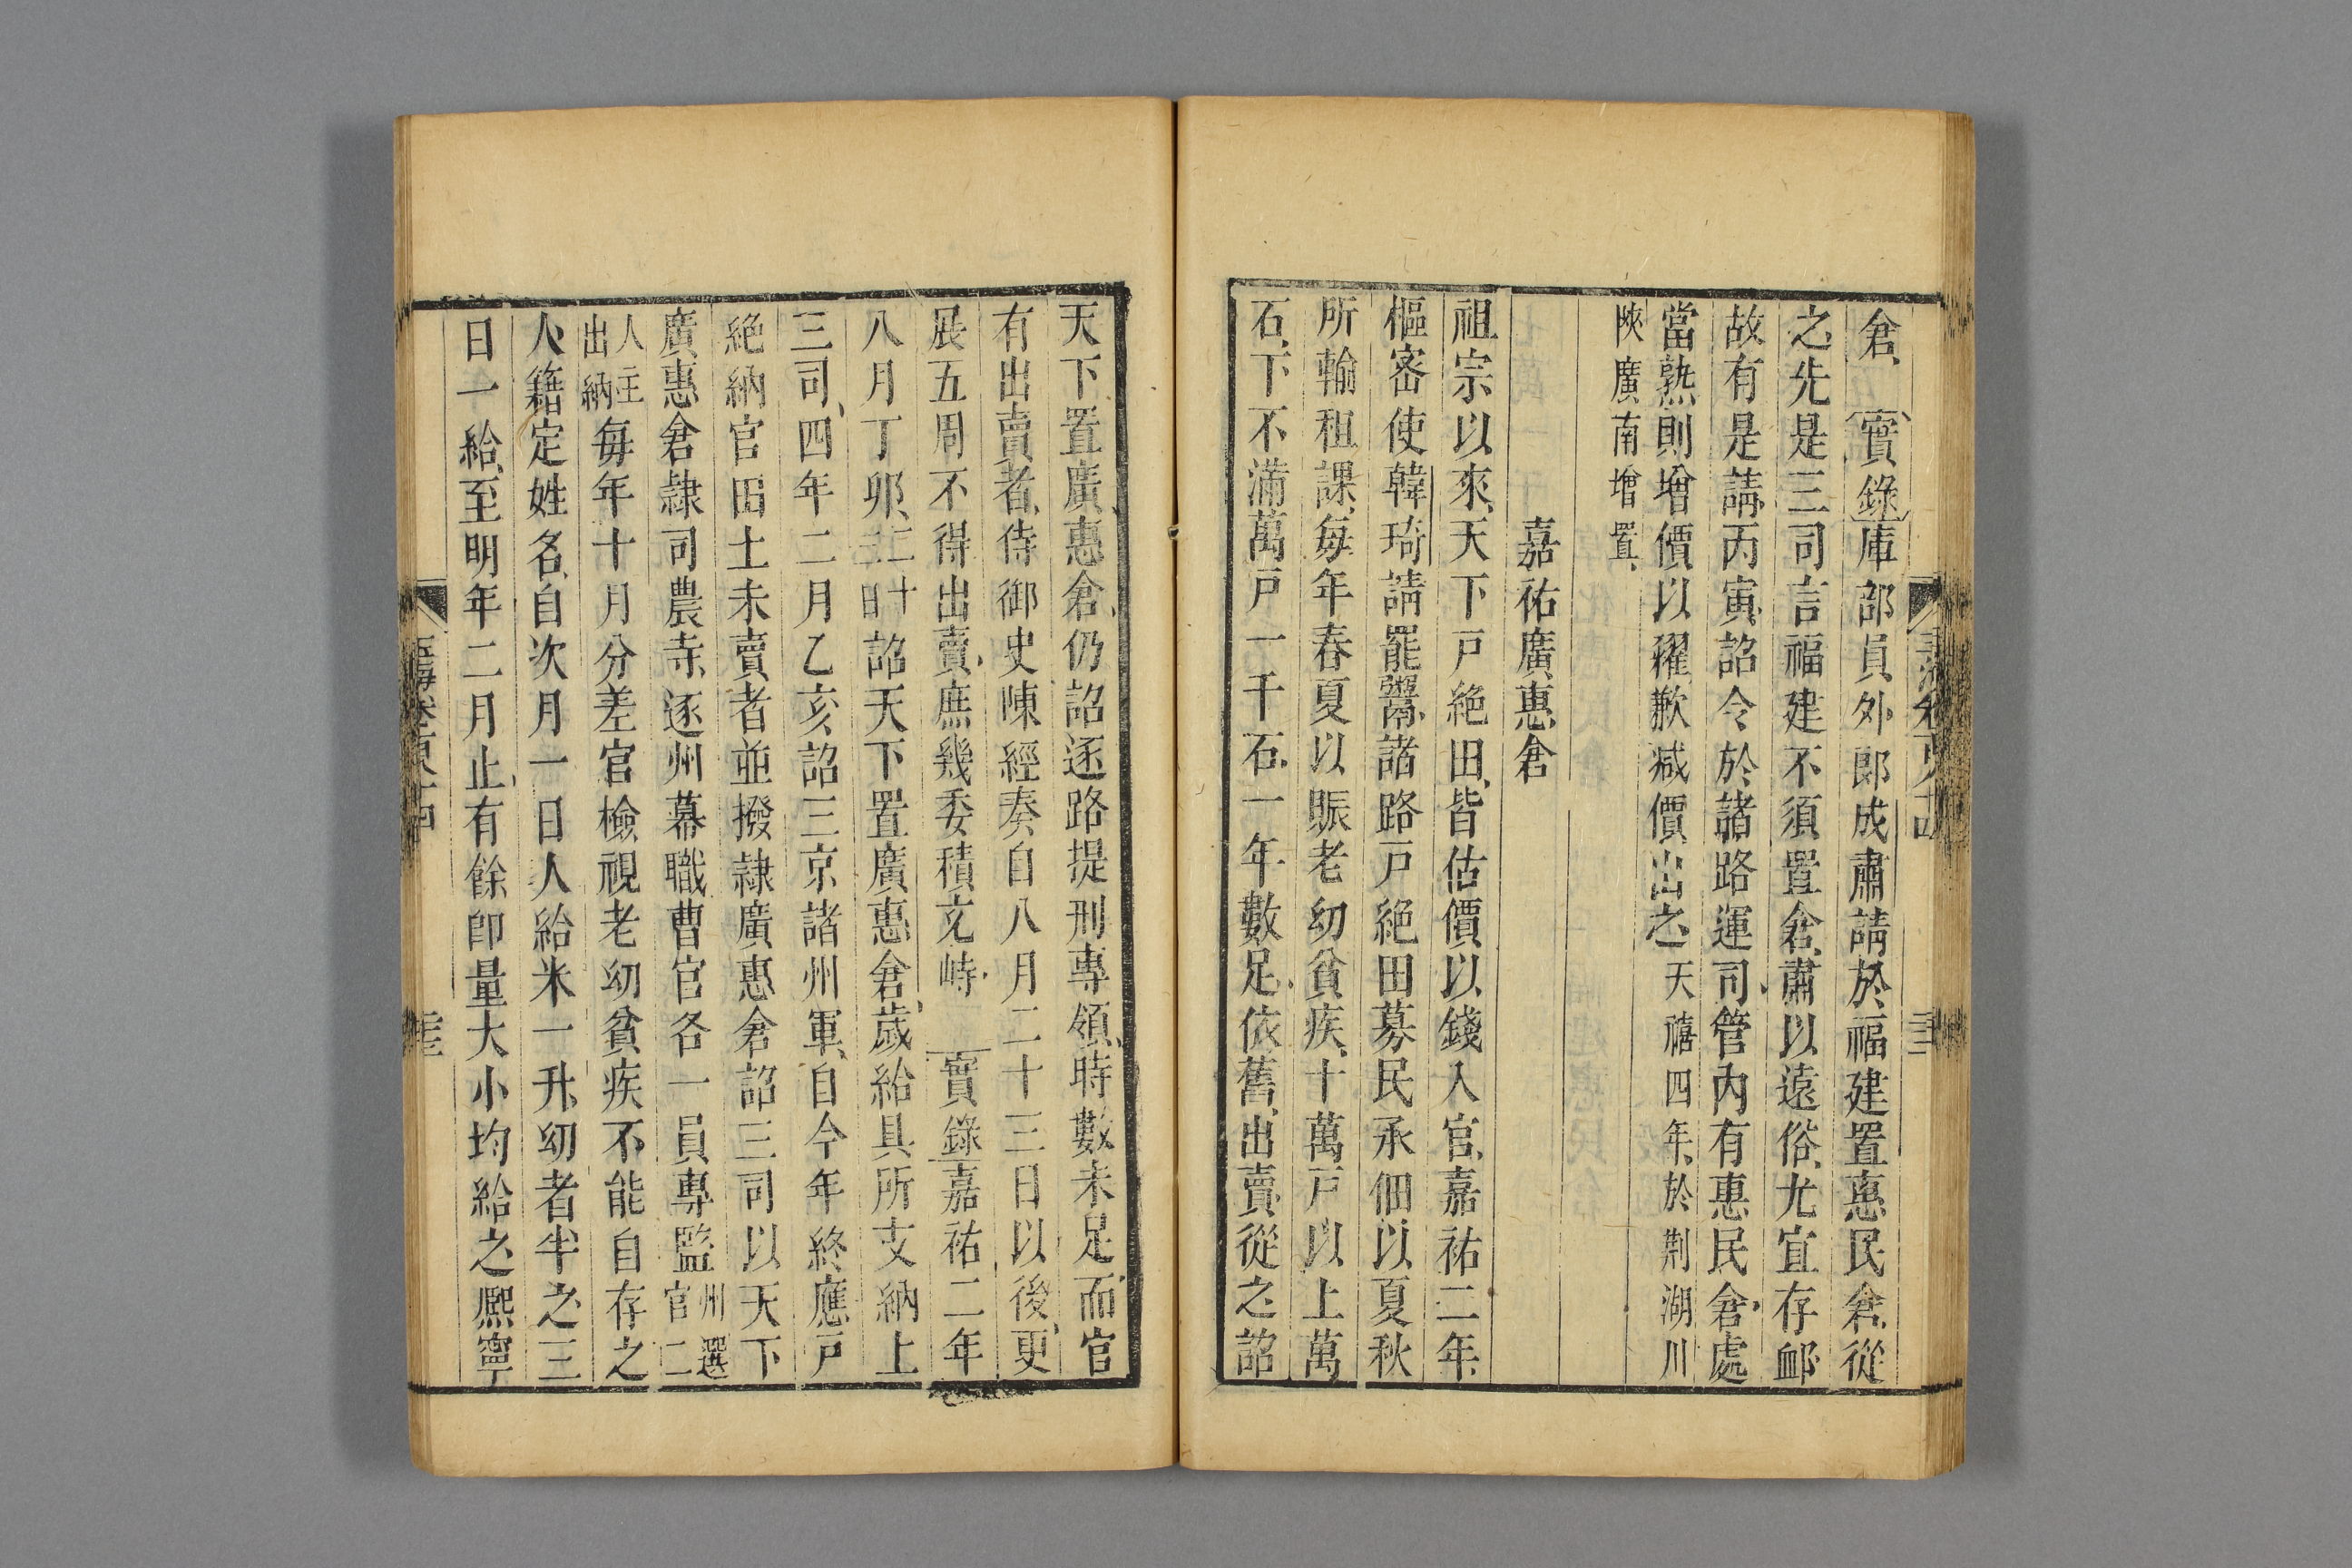 倉實錄庫部員外郎成肅請於福建置惠民倉從
之先是三司言福建不須置倉肅以遠俗尤宜存䘏
故有是請丙寅詔令於諸路運司管內有惠民倉處
當熟則增價以糴歉減價出之天禧四年於荆湖川
陝廣南增置
嘉祐廣惠倉
祖宗以來天下戸絶田皆估價以錢入官嘉祐二年
樞密使韓琦請罷鬻諸路戸絶田募民承佃以夏秋
所輸租課每年春夏以賑老幼貧疾十萬戸以上萬
石下不滿萬戸一千石一年數足依舊出賣從之詔
天下置廣惠倉仍詔逐路提刑專領時數未足而官
有出賣者侍御史陳經奏自八月二十三日以後更
展五周不得出賣庶幾委積充峙 實錄嘉祐二年
八月丁卯二十三日詔天下置廣惠倉歲給具所支納上
三司四年二月乙亥詔三京諸州軍自今年終應戸
絶納官田土未賣者並撥隷廣惠倉詔三司以天下
廣惠倉隷司農寺逐州幕職曹官各一員專監州選官二
人主出納每年十月分差官檢視老幼貧疾不能自存之
人籍定姓名自次月一日人給米一升幼者半之三
日一給至明年二月止有餘卽量大小均給之熙寧